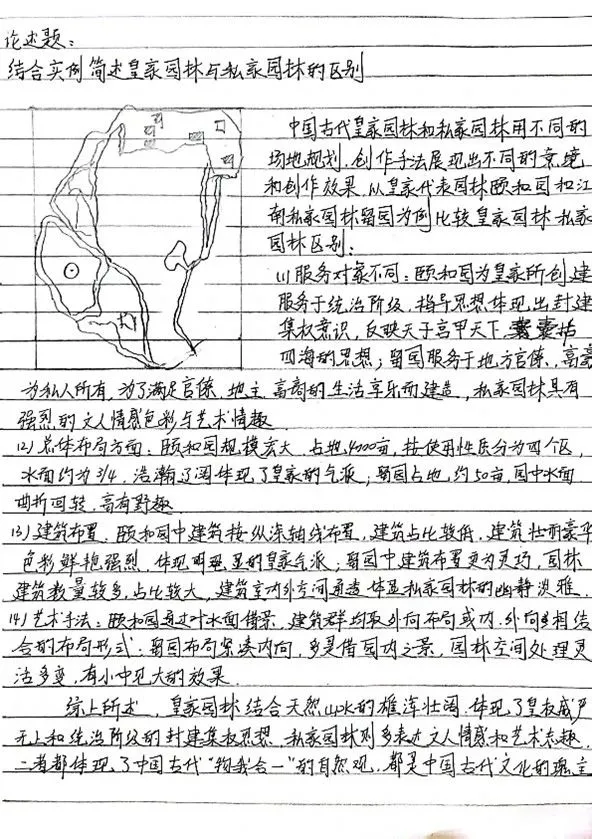 论述题:
结合实例简述皇家园林与私家园林的区别
中国古代皇家园林和私家园林用不同的
场地规划、创作手法展现出不同的意境
和创作效果.以皇家代表园林颐和园和江
南私家园林留园为例比较皇家园林私家
园林区别:
(1)服务对象不同:颐和园为皇家所创建
服务于统治阶级,指导思想体现出封建
集权意识,反映天子富甲天下,囊括
四海的思想;留园服务于地方官僚、富豪
为私人所有,为了满足官僚、地主、富商的生活享乐而建造,私家园林具有
强烈的文人情感色彩与艺术情趣
(2)总体布局方面:颐和园规模宏大,占地4000亩,按使用性质分为四个区,
水面约为3/4,浩瀚辽阔体现了皇家的气派;留园占地约50亩,园中水面
曲折回转,富有野趣
(3)建筑布置:颐和园中建筑按纵深轴线布置,建筑占比较低,建筑壮丽豪华
色彩鲜艳强烈,体现明显的皇家气派;留园中建筑布置更为灵巧,园林
建筑数量较多,占比较大,建筑室内外空间通透体显私家园林的幽静淡雅.
(4)艺术手法:颐和园通过水面借景,建筑群均取外向布局或内、外向相结
合的布局形式;留园布局紧凑内向,多是借园内之景,园林空间处理灵
活多变,有小中见大的效果.
综上所述,皇家园林结合天然山水的雄浑壮阔,体现了皇权威严
无上和统治阶级的封建集权思想.私家园林则多表达文人情感和艺术志趣,
二者都体现了中国古代"物我合一"的自然观,都是中国古代文化的瑰宝